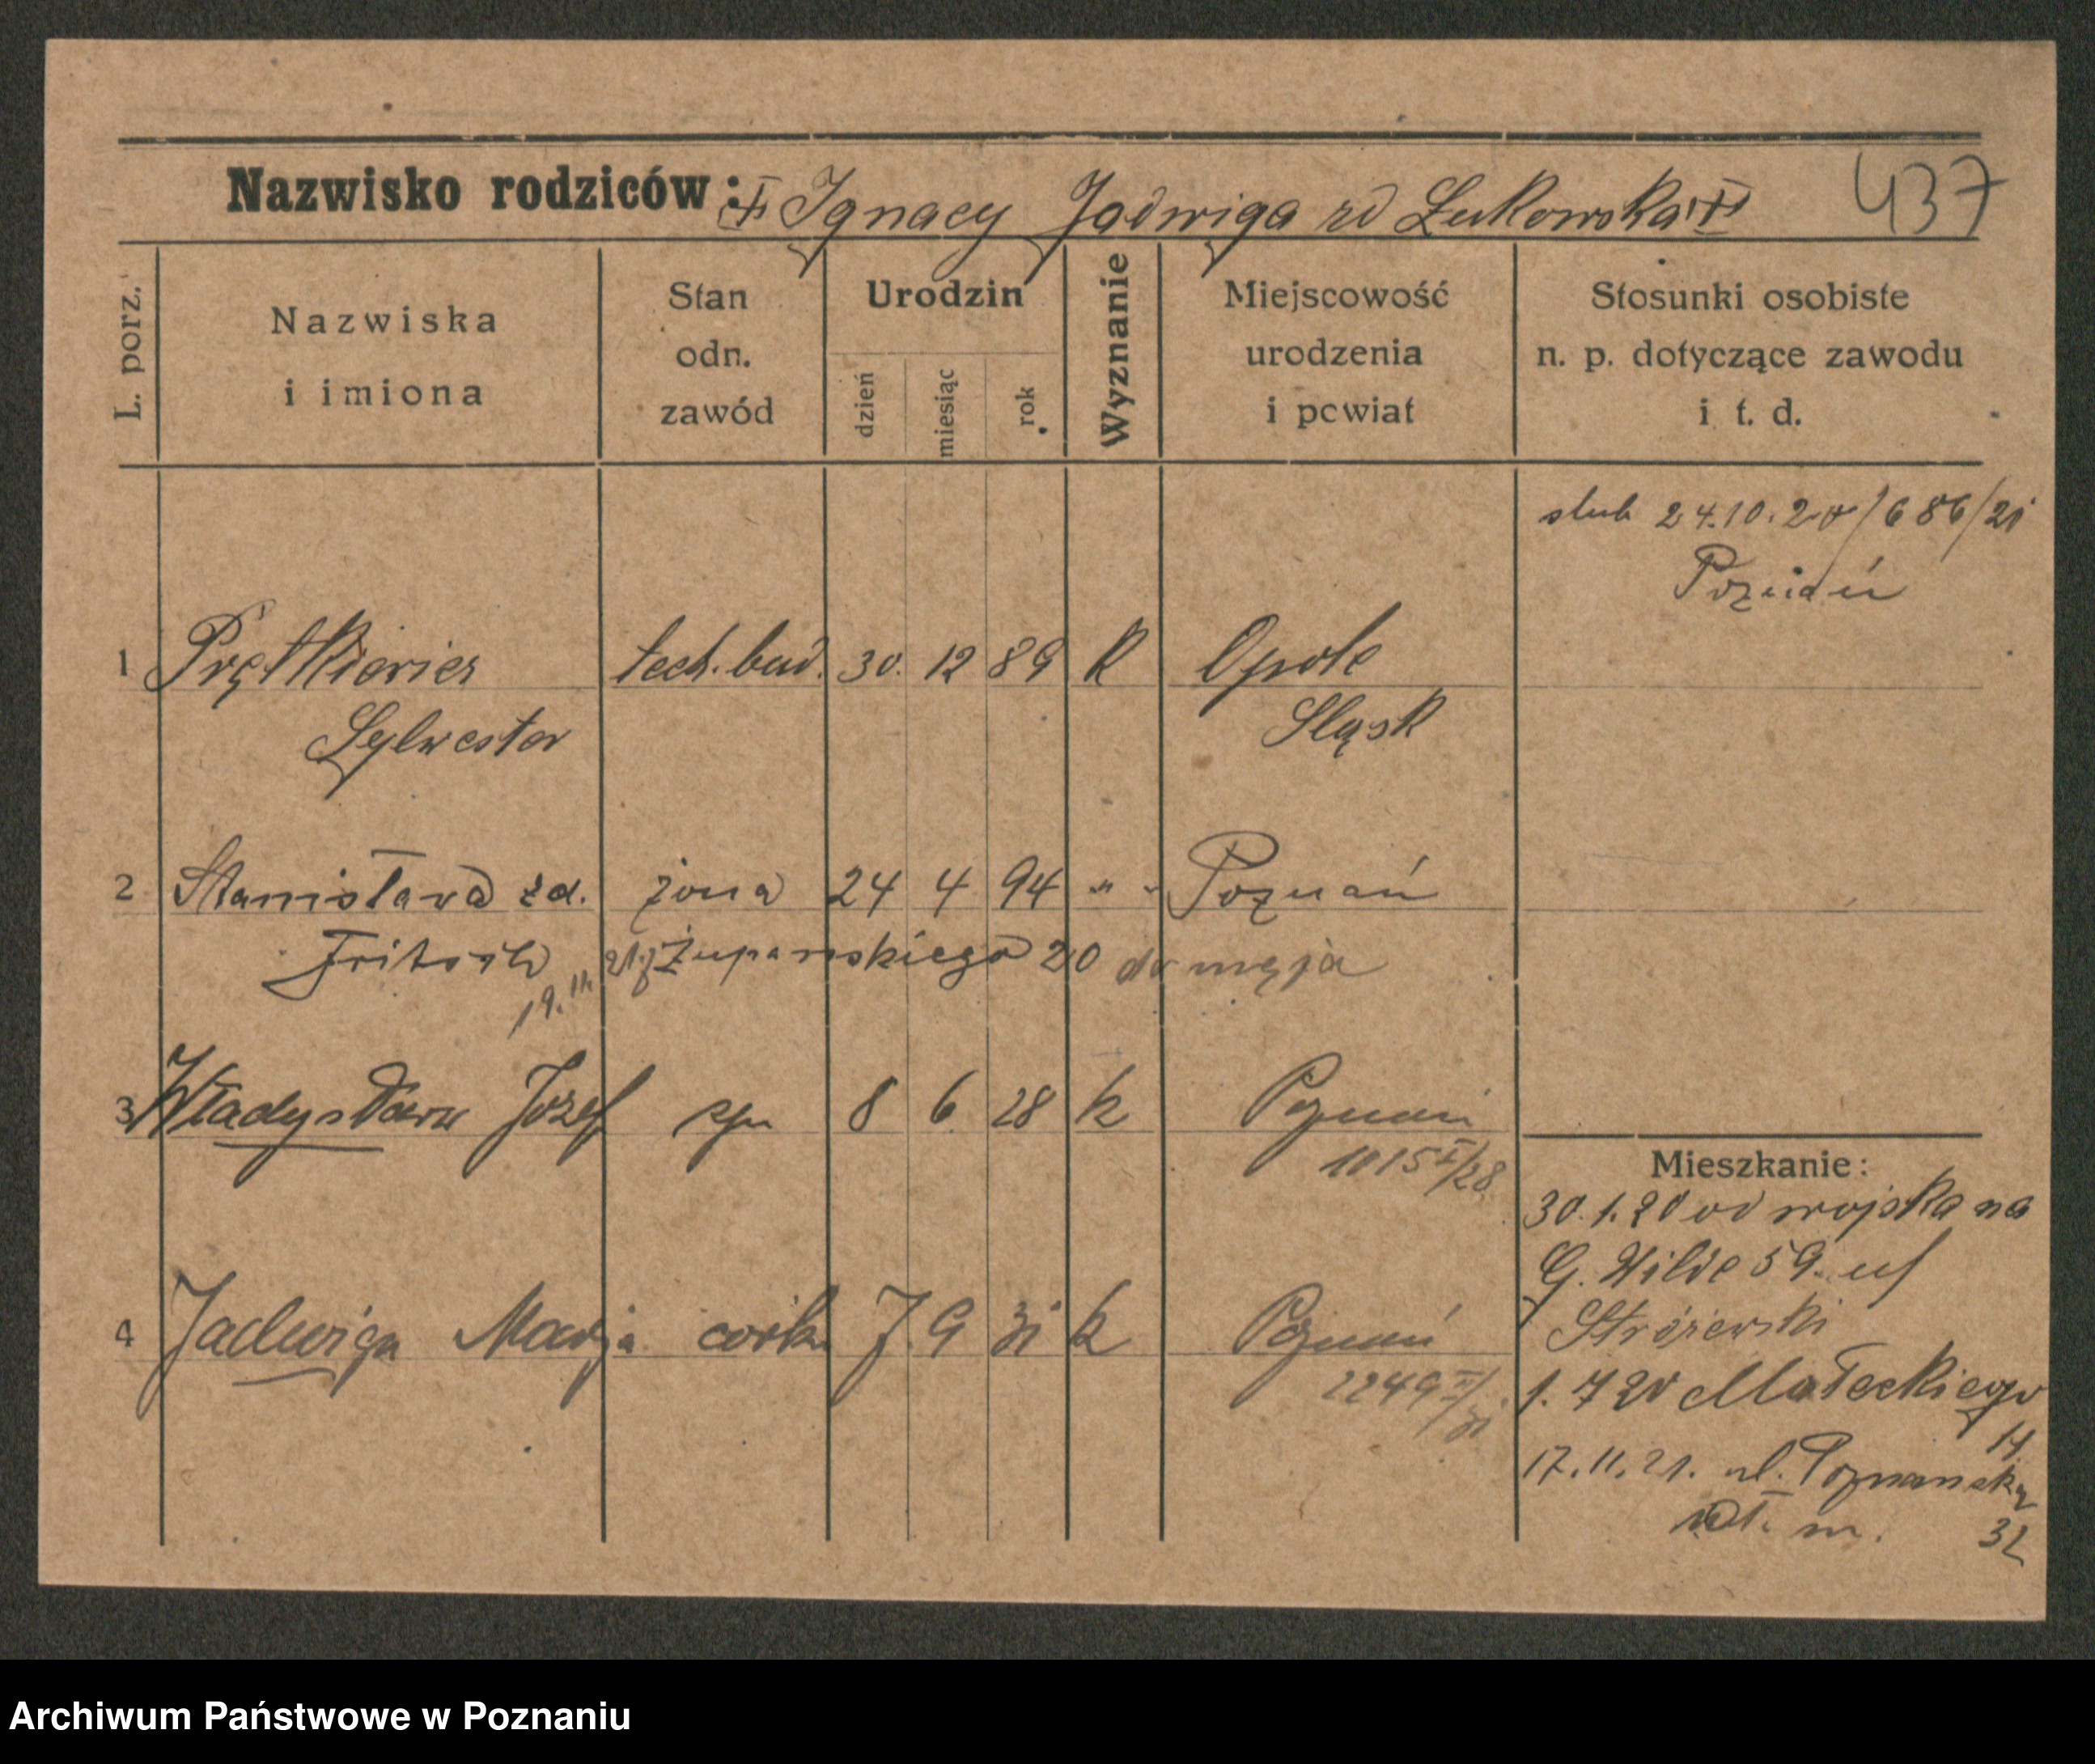 Nazwisko rodziców: Ignacy Jadwiga zd Łukowska
437
L. porz.
Nazwiska
i imiona
Stan
odn.
zawód
Urodzin
dzień
miesiąc
rok
Wyznanie
Miejscowość
urodzenia
i powiat
Stosunki osobiste
n. p. dotyczące zawodu
i t. d.
ślub 24.10.20/686/21
Poznań
1 Prętkiewicz tech. bud. 30. 12 89 k Opole
Sylwester Śląsk
2 Stanisława zd. żona 24 4 94 " " Poznań
Fritsch 19. 11. 21 Żupańskiego 20 do męża
3 Władysław Józef syn 8 6 28 k Poznań
1015 I/28
4 Jadwiga Marja córka 7. 9 31 k Poznań
2249 II/31
Mieszkanie:
30.1.20 od wojska na
G. Wilde 59. u/
Stróżewski
1. 7 20 Małeckiego
14
17.11.21. ul. Poznanska
wł. m. 32
Archiwum Państwowe w Poznaniu